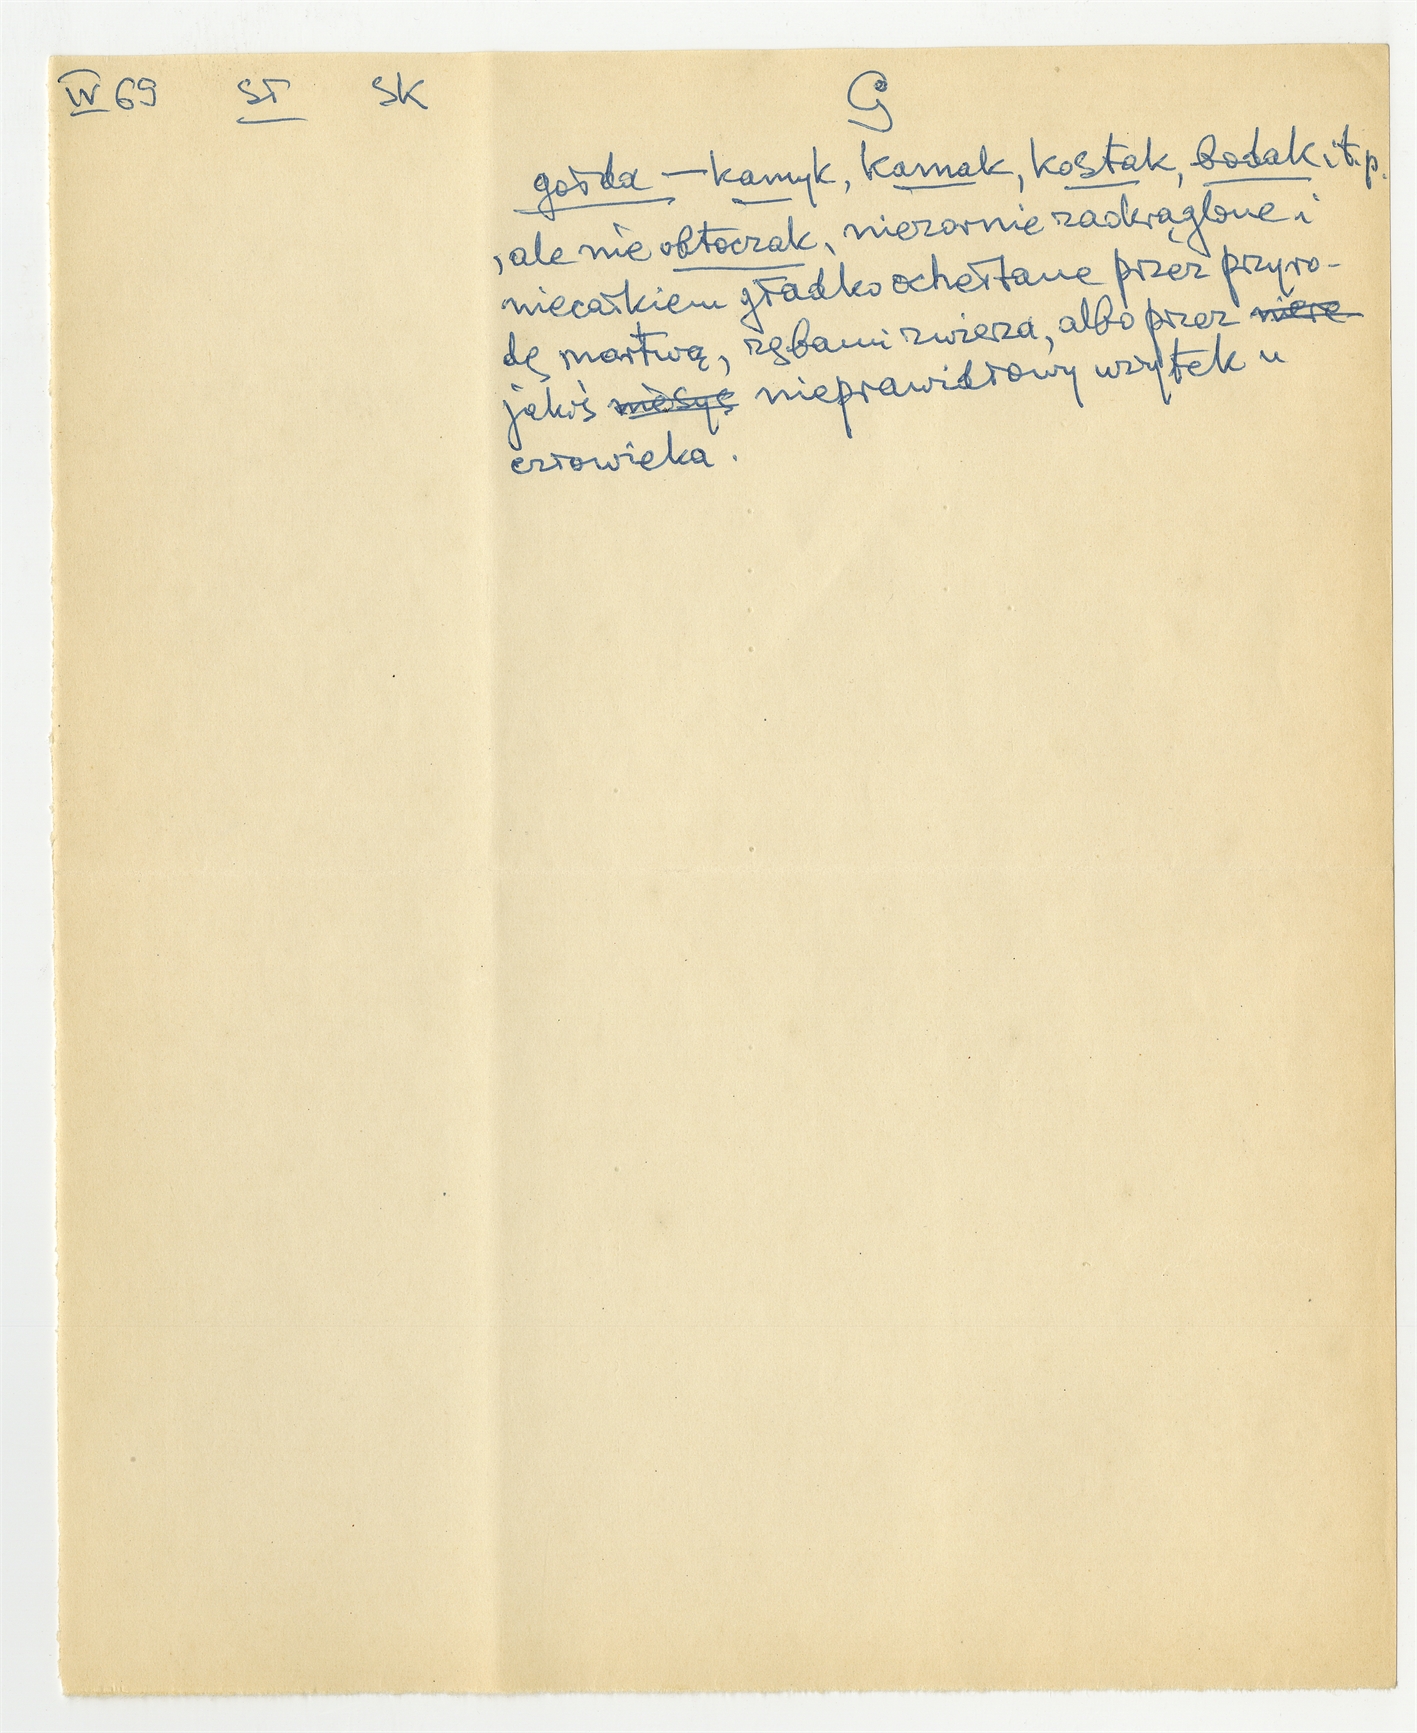 IV 69 ST SK G
gołda — kamyk, kamak, kostak, bodak i t.p.
, ale nie obtoczak, niezornie zaokrąglone i
niecałkiem gładko ochełtane przez przyro-
dę martwą, zębami zwierza, albo przez niere
jakiś nieprawidłowy użytek u
człowieka .